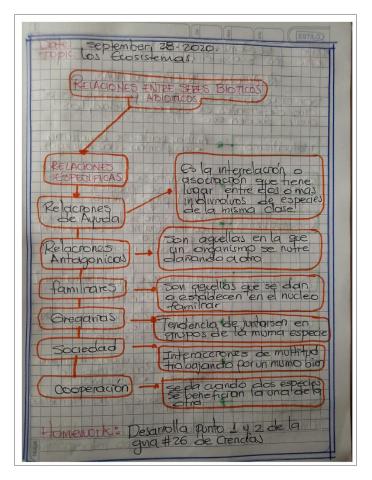 Date: September 28-2020.
Topic: Los Ecosistemas
RELACIONES ENTRE SERES BIOTICOS
Y ABIOTICOS
RELACIONES
ESPECIFICAS
Es la interrelación o
asociación que tiene
lugar entre dos o más
individuos de especies
de la misma clase!
Relaciones
de Ayuda
Relaciones
Antagonicas
Son aquellas en la que
un organismo se nutre
dañando a otro
familiares
Son aquellas que se dan
o establecen en el nucleo
familiar
Gregarias
Tendencia de juntarsen en
grupos de la misma especie
Sociedad
Interacciones de multitud
trabajando por un mismo bio
Cooperación
se da cuando dos especies
se benefician la una de la
otra
Homework: Desarrolla punto 1 y 2 de la
guia #26 de Ciencias